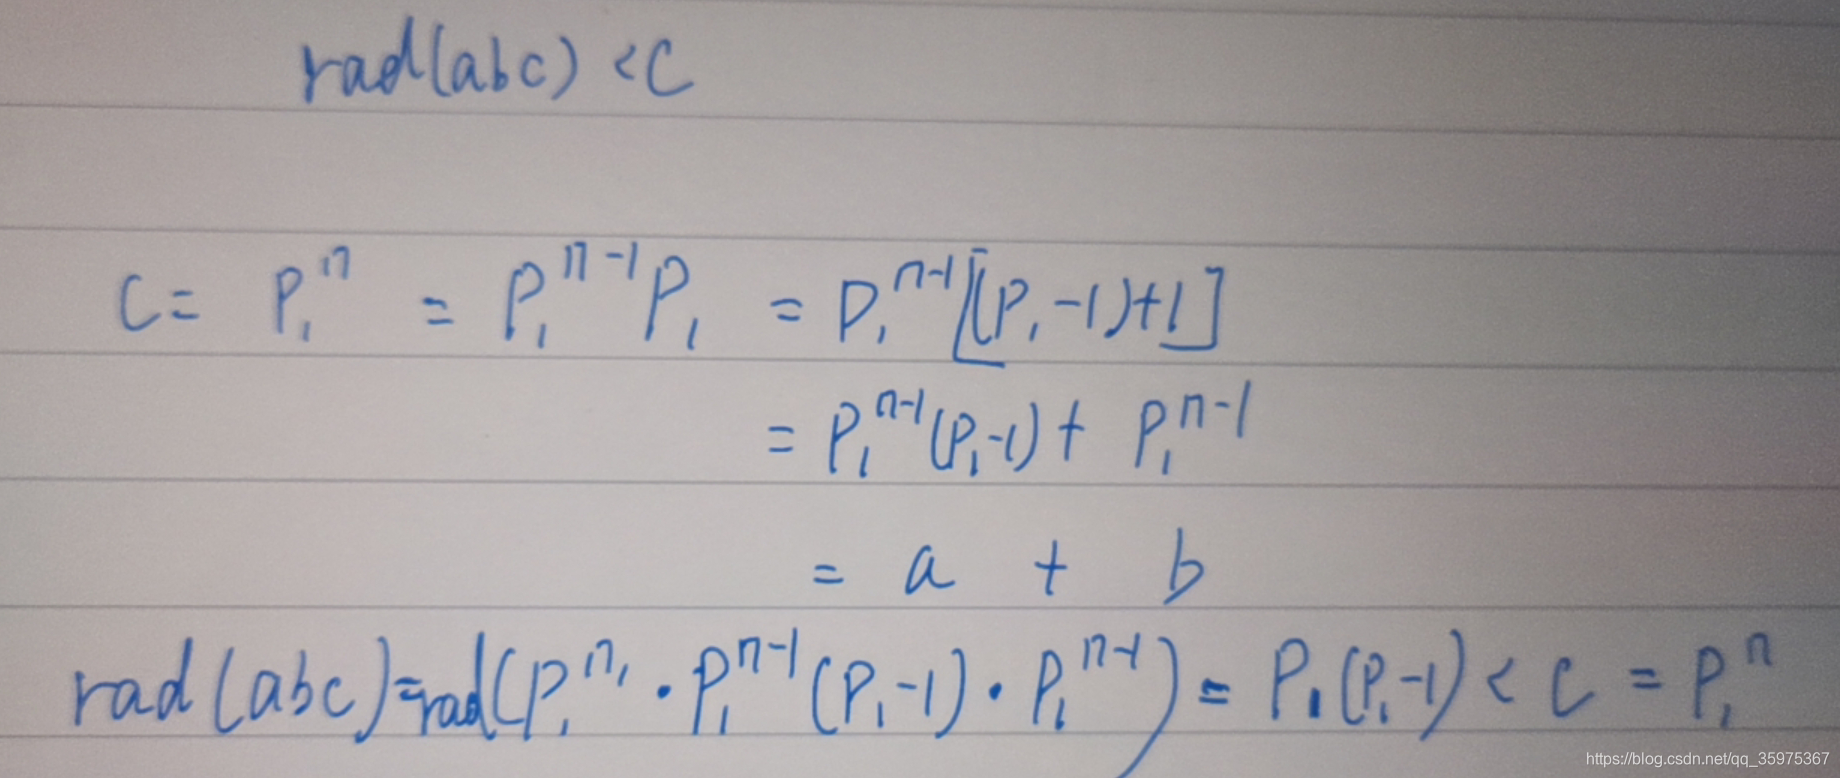 rad(abc) < C
C = P₁ⁿ = P₁ⁿ⁻¹P₁ = P₁ⁿ⁻¹[(P₁-1)+1]
= P₁ⁿ⁻¹(P₁-1) + P₁ⁿ⁻¹
= a + b
rad(abc)=rad(P₁ⁿ · P₁ⁿ⁻¹(P₁-1) · P₁ⁿ⁻¹) = P₁(P₁-1) < C = P₁ⁿ
https://blog.csdn.net/qq_35975367